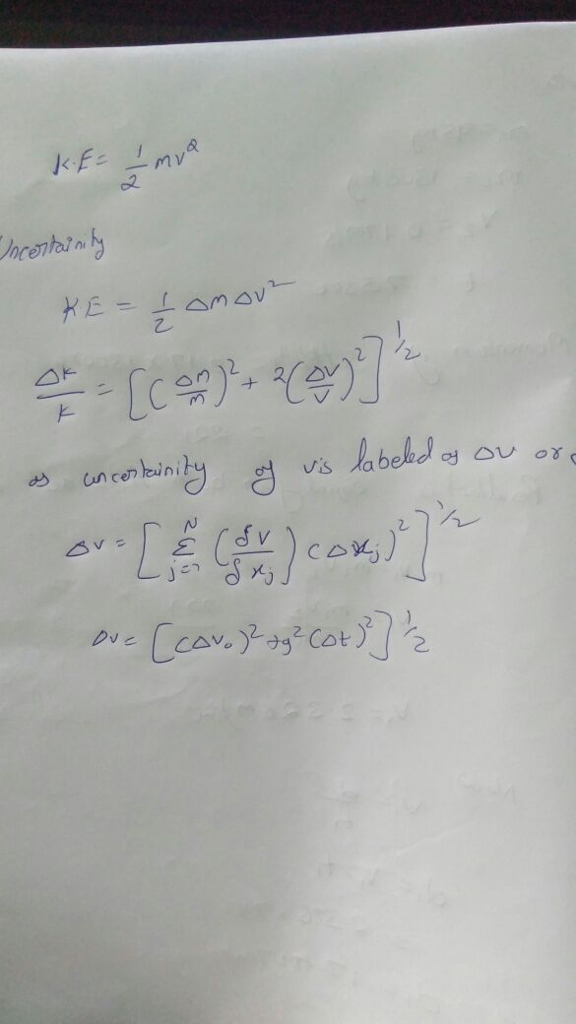 K.E = 1/2 mv²
Uncertainity
K.E = 1/2 Δm Δv²
Δk/k = [(Δm/m)² + 2(Δv/v)²]^1/2
as uncertainity of v is labeled as Δv or
Δv = [Σ_{j=1}^{N} (δv/δx_j) (Δx_j)²]^1/2
Δv = [(Δv₀)² + g²(Δt)²]^1/2